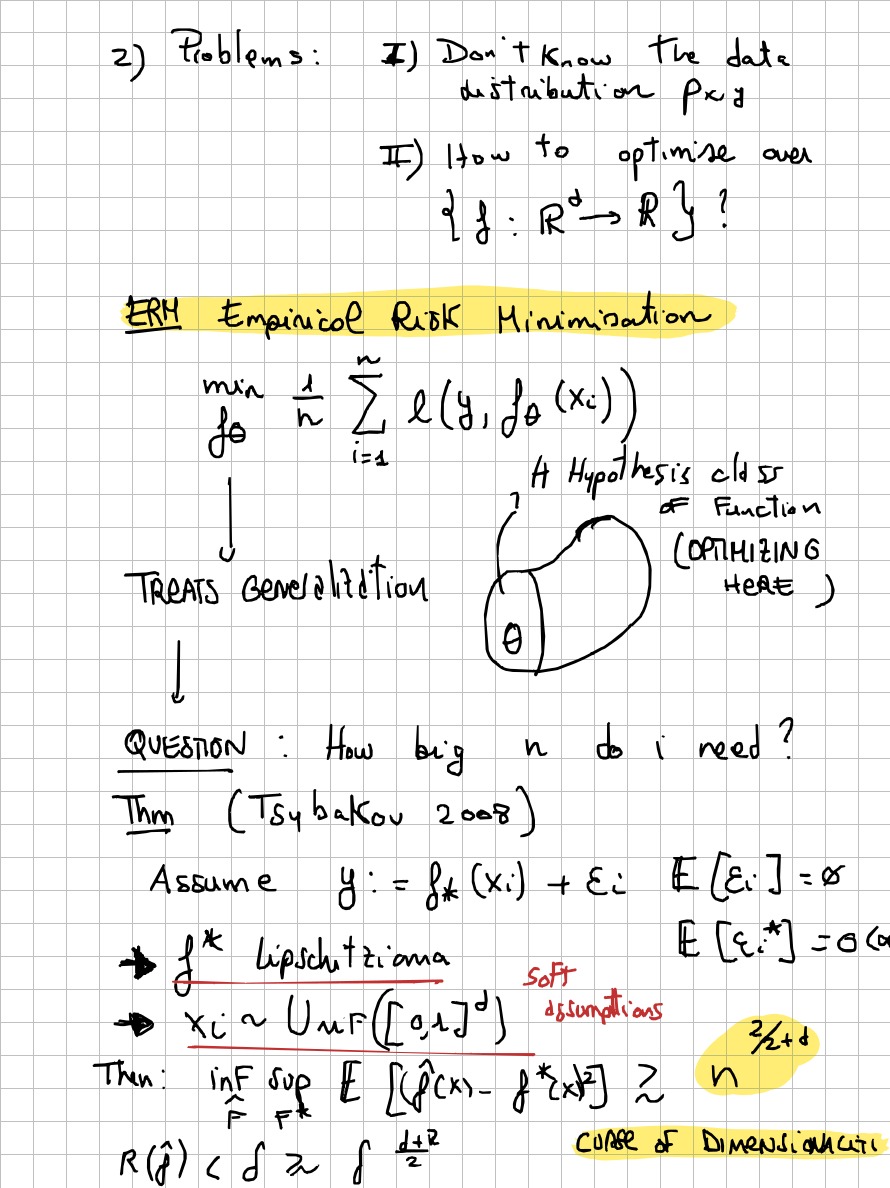 2) Problems: I) Don't Know The data
distribution Pxy
II) How to optimise over
{ f : ℝ^d → ℝ } ?
ERM Empirical Risk Minimisation
min_{fθ} 1/n Σ_{i=1}^{n} l(y, fθ(xi))
A Hypothesis class
of Function
(OPTIMIZING
HERE)
TREATS Generalization
θ
QUESTION : How big n do i need?
Thm (Tsybakov 2008)
Assume yi = f*(xi) + εi E[εi] = 0
→ f* Lipschitziana
soft
assumptions
→ xi ~ UniF([0,1]^d)
Then: inF_{F̂} sup_{F*} E [(f̂(x) - f*(x))^2] ≳ n^{2/2+d}
CURSE OF DIMENSIONALITI
R(f̂) < δ ≳ δ^{d+2/2}